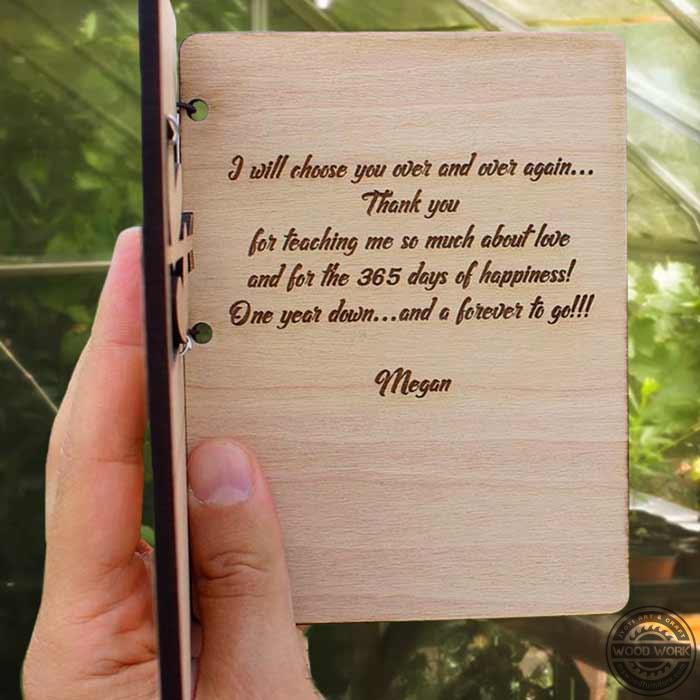 I will choose you over and over again...
Thank you
for teaching me so much about love
and for the 365 days of happiness!
One year down...and a forever to go!!!
Megan
WOOD WORK